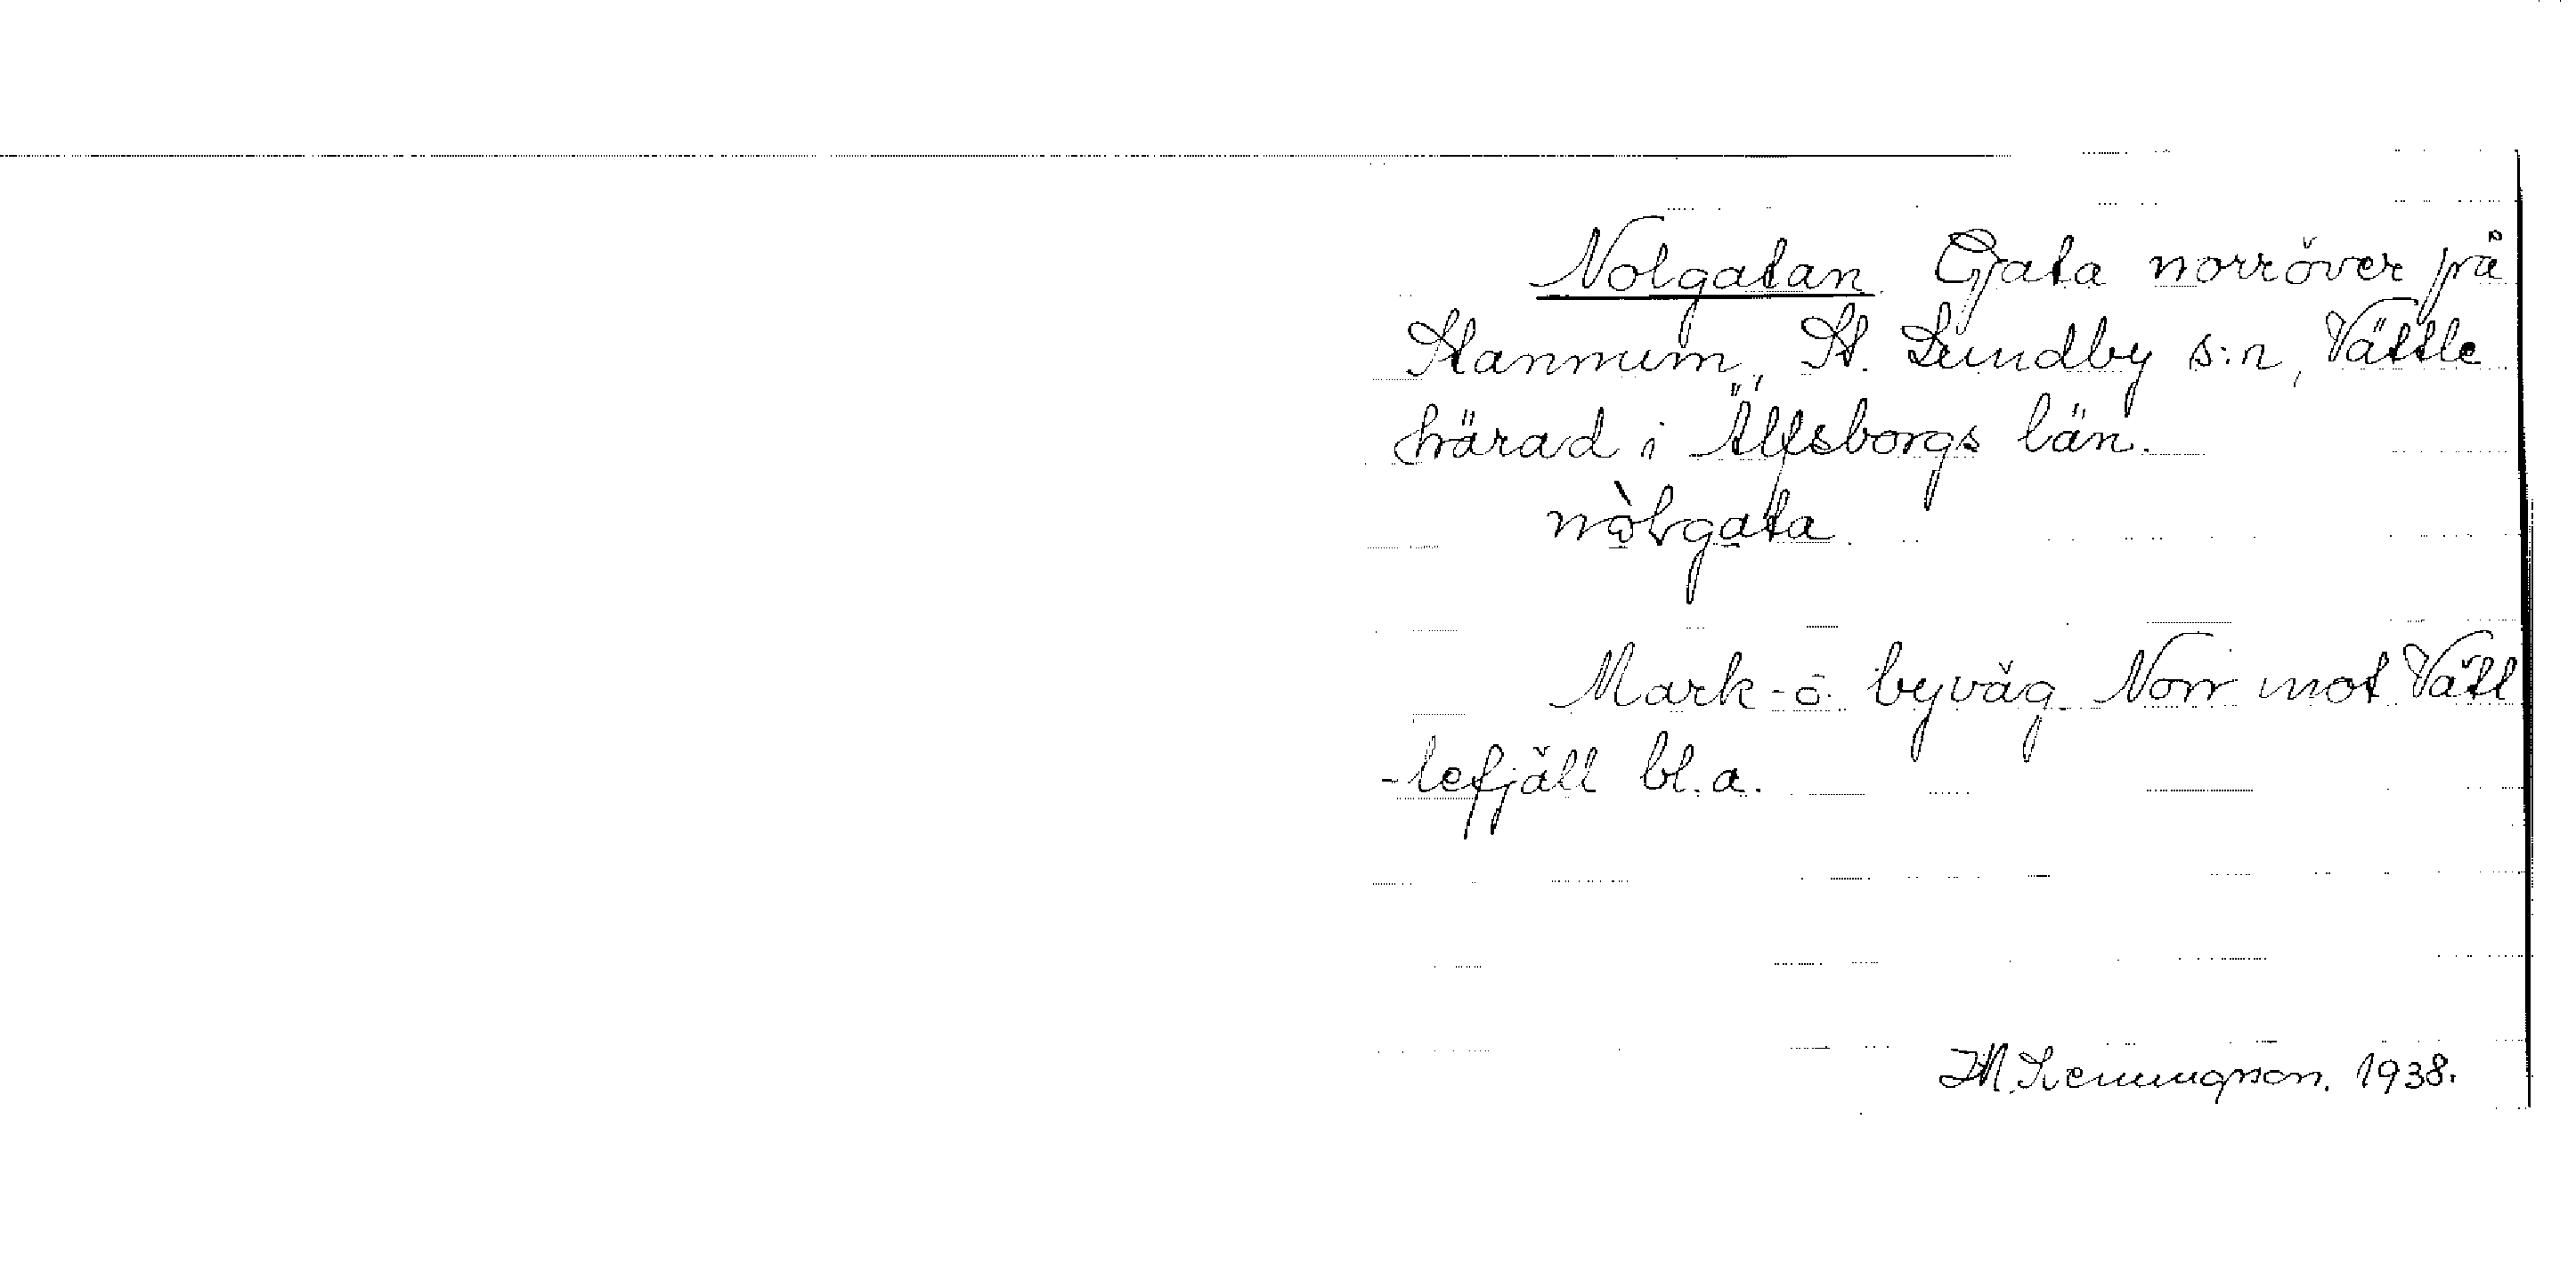 Nolgatan. Gata norröver på
Stannum, St. Lundby s:n, Vättle
härad i Älfsborgs län.
nòlgata
Mark- o. byväg. Norr mot Vätt
-lefjäll bl.a.
1938.